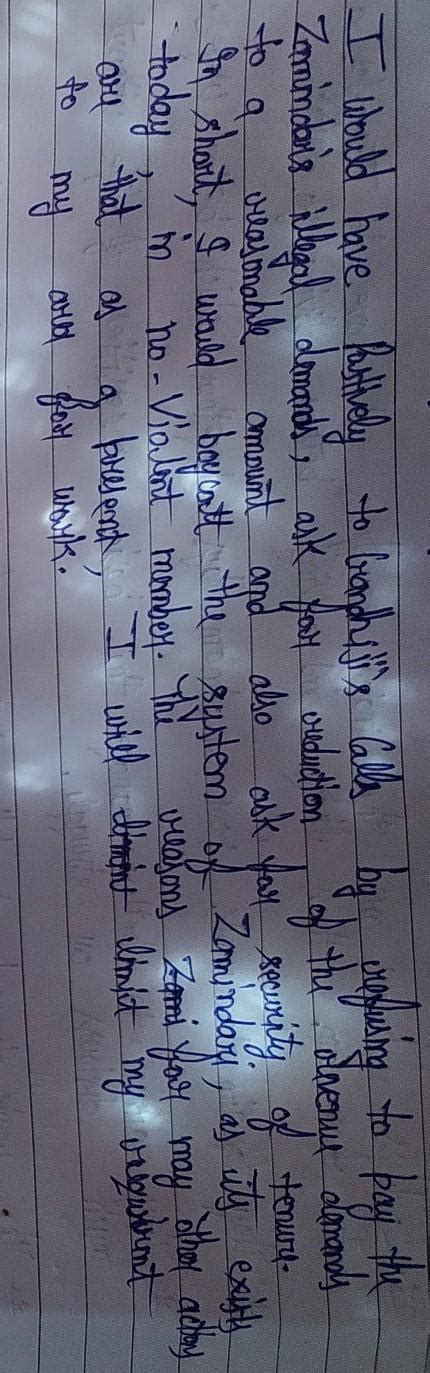 I would have positively to Gandhiji's Calls by refusing to pay the
Zamindar's illegal demands, ask for reduction of the revenue demands
to a reasonable amount and also ask for security of tenure.
In short, I would boycott the system of Zamindari, as its exists
today, in no-Violent manner. The reasons for may then actions
are that as a present, I will limit my
to my own for work.